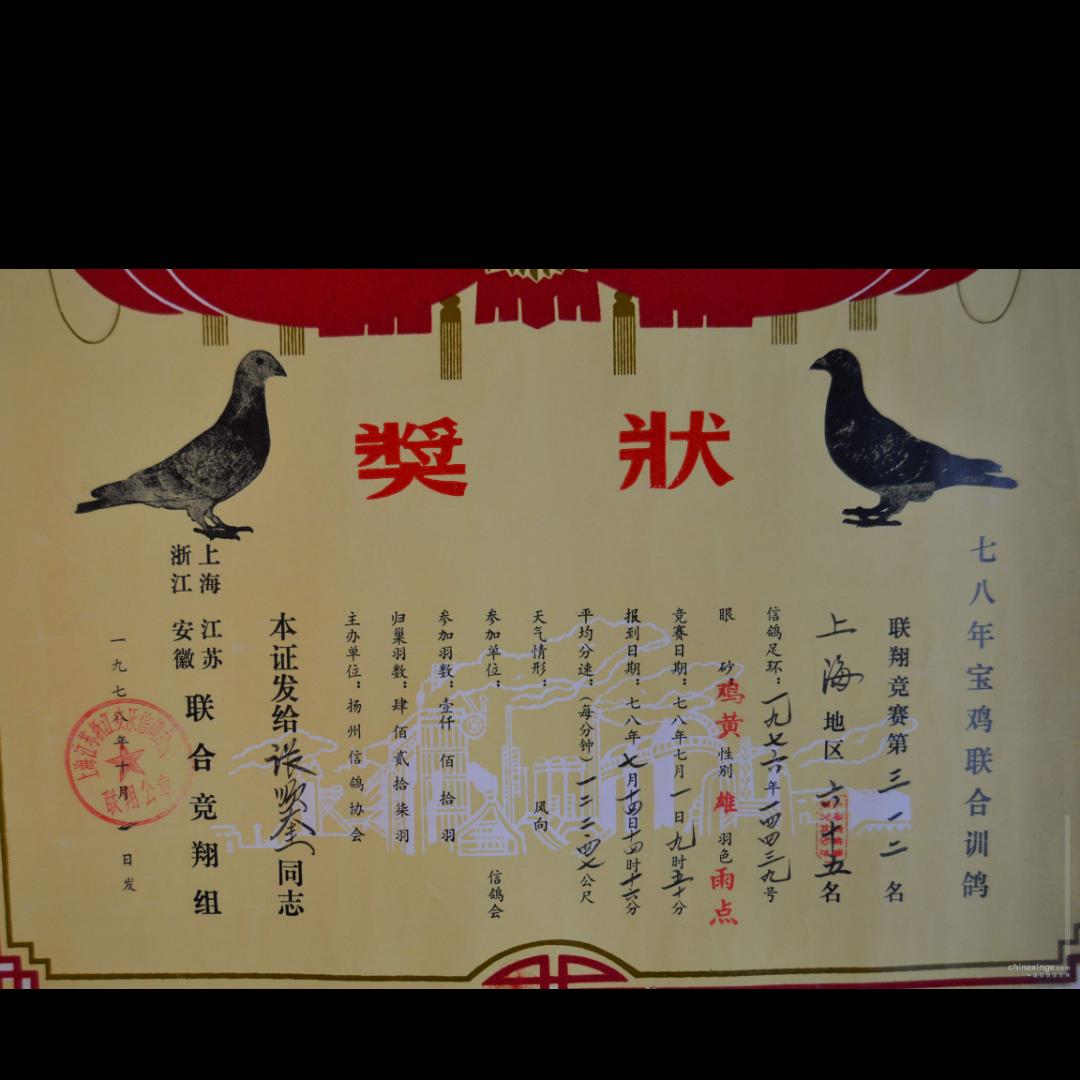 奖状
七八年宝鸡联合训鸽
联翔竞赛第三一二名
上海地区六十五名
信鸽足环：一九七六年一四四三九号
眼砂鸡黄性别雄羽色雨点
竞赛日期：七八年七月一日九时五十分
报到日期：七八年七月十四日十四时十六分
平均分速：（每分钟）一二二·四七公尺
天气情形：风向
参加单位：信鸽会
参加羽数：壹仟佰拾羽
归巢羽数：肆佰贰拾柒羽
主办单位：扬州信鸽协会
本证发给张顺奎同志
上海 江苏
浙江 安徽
联合竞翔组
一九七八年十月一日发
联翔公章
chinaxinge.com